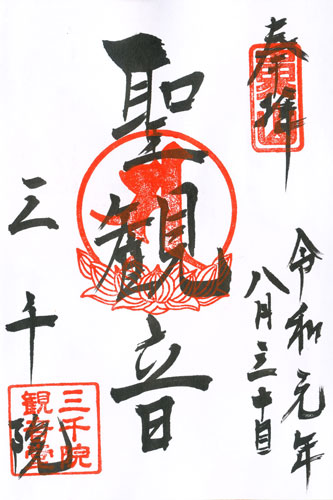 奉拝
令和元年
八月三十日
聖観音
三千院
三千院
観音堂